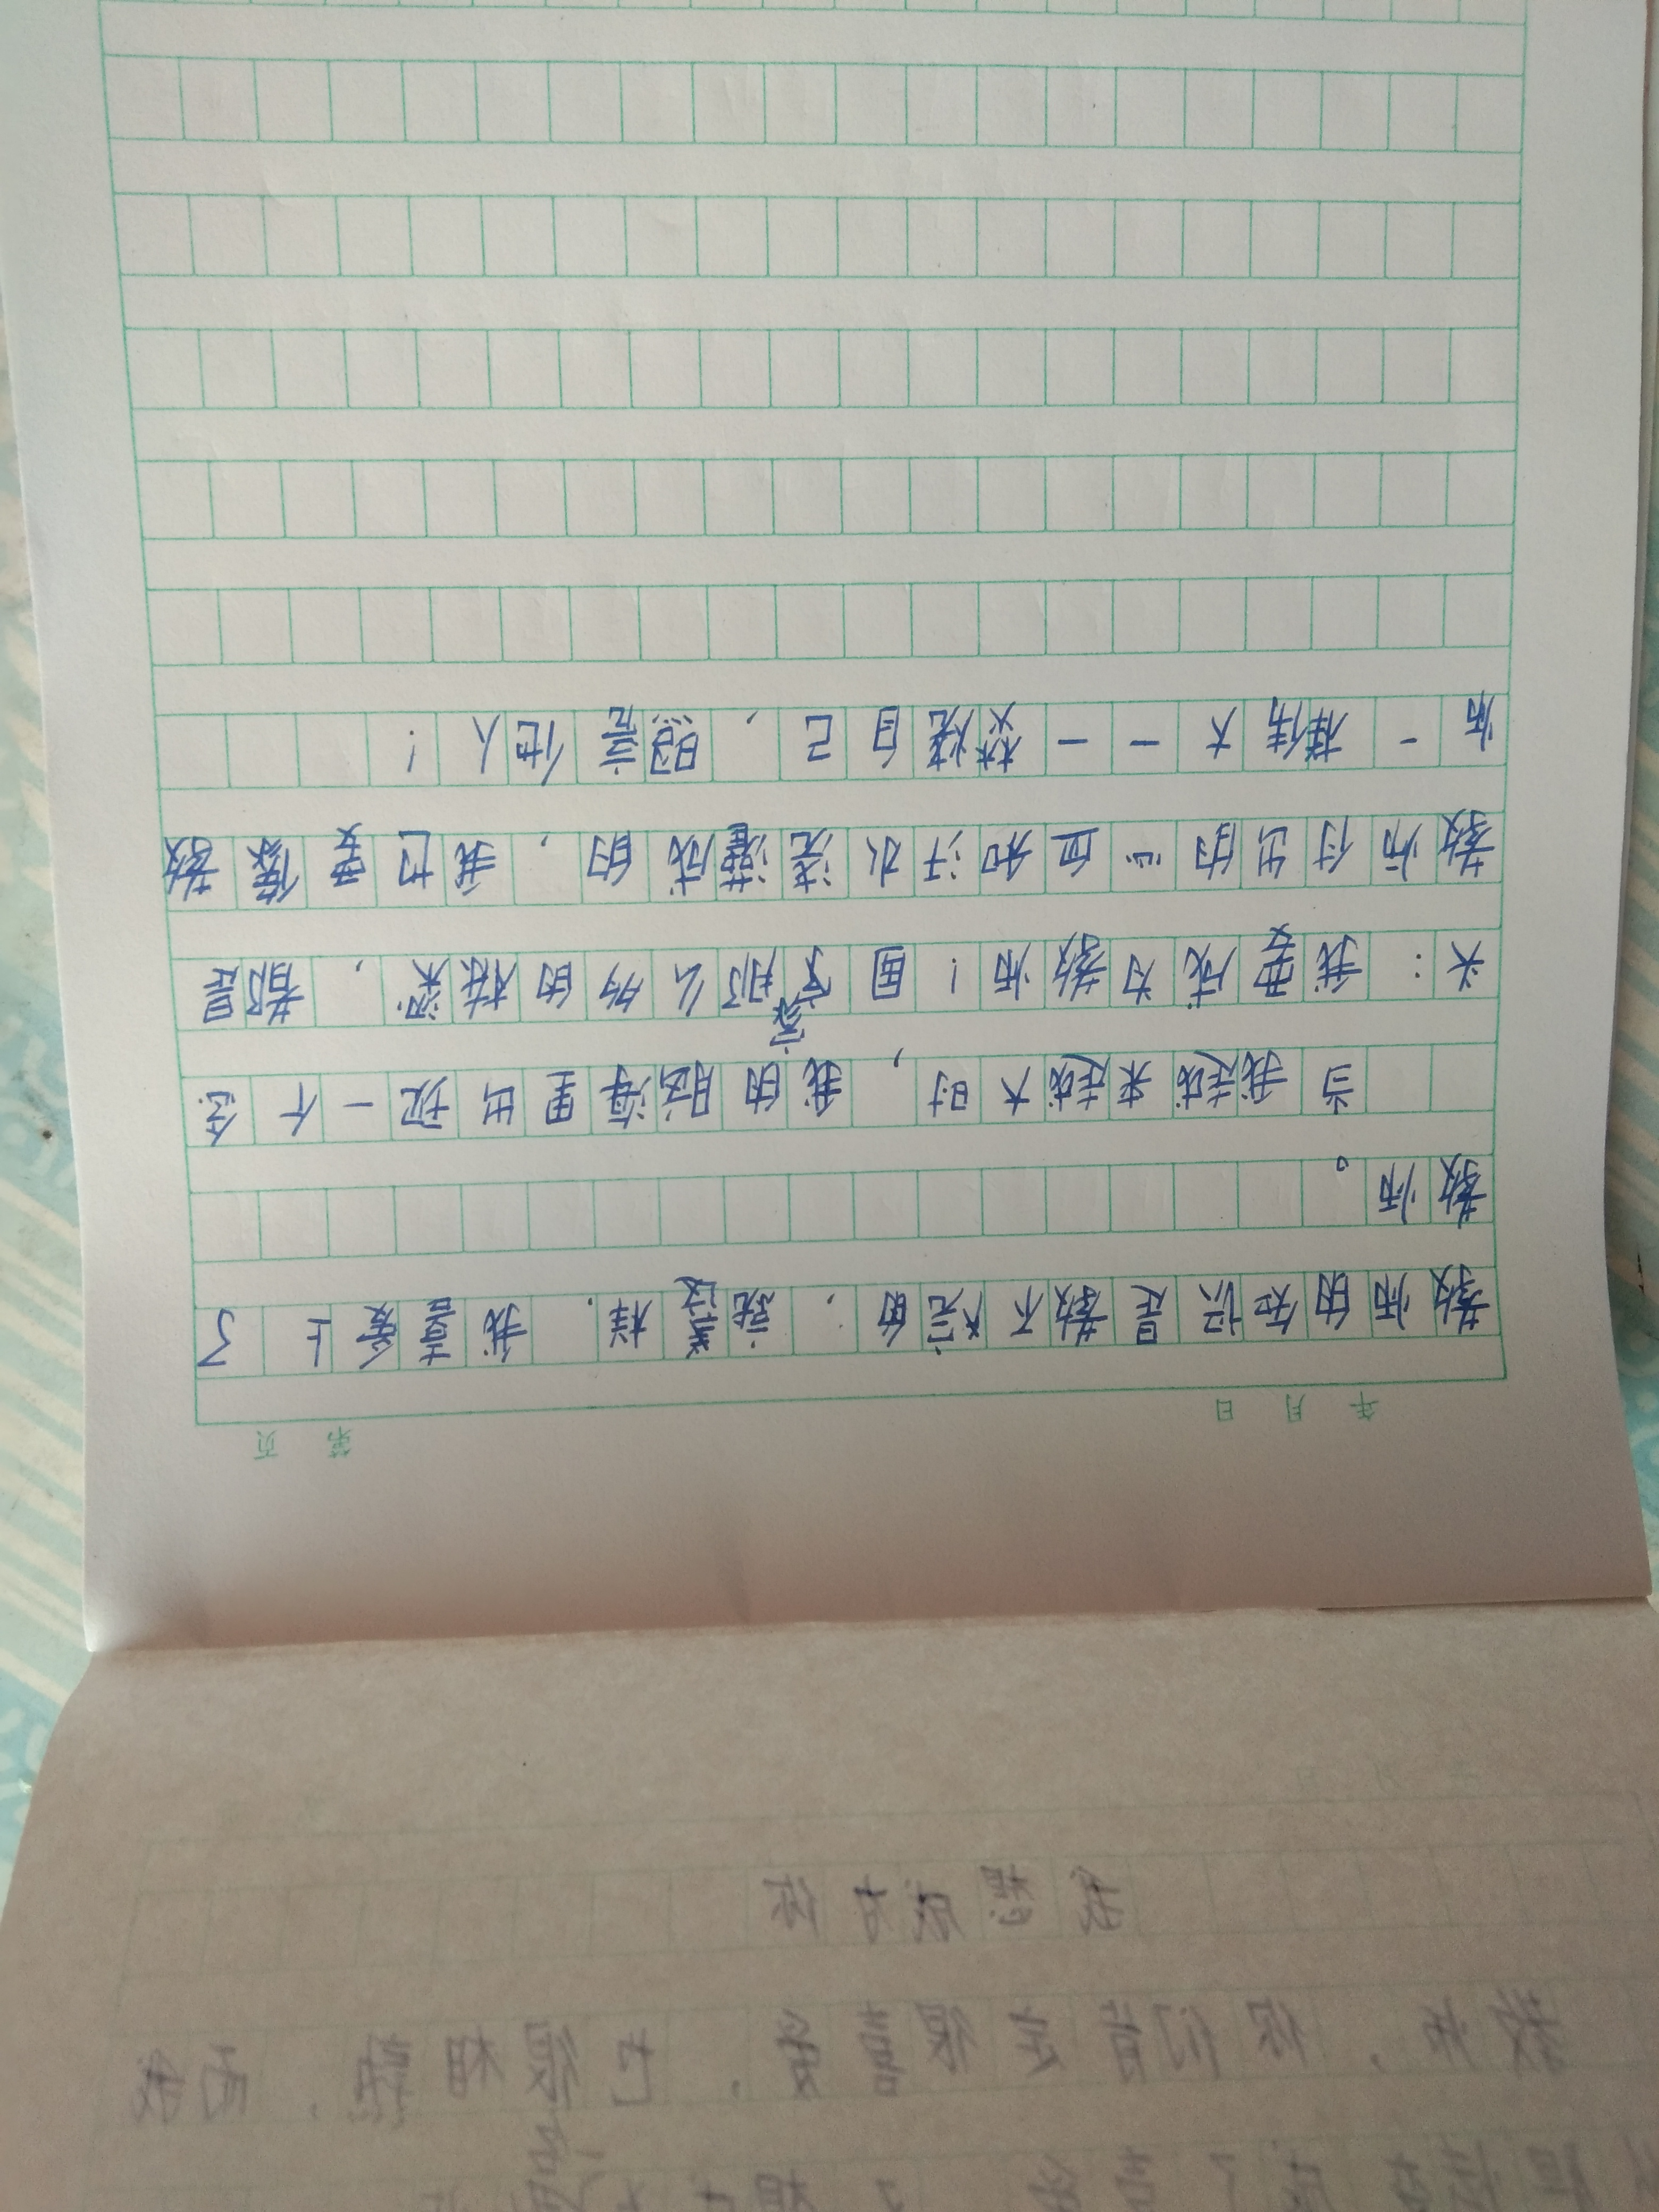 我想成为你
教师,你们肯定很喜爱,也很相熟,而我
年 月 日 第 页
教师的知识是数不完的,就这样,我喜爱上了
教师。
当我越来越大时,我的脑海里出现一个念
头:我要成为教师!国家那么多的栋梁,都是
教师付出的心血和汗水浇灌成的,我也要像教
师一样伟大——焚烧自己,照亮他人!